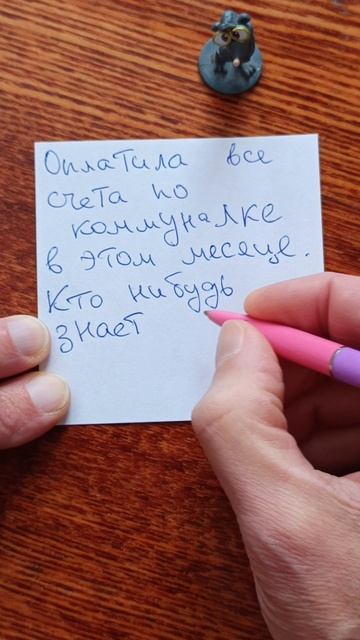 Оплатила все
счета по
коммуналке
в этом месяце.
Кто нибудь
знает